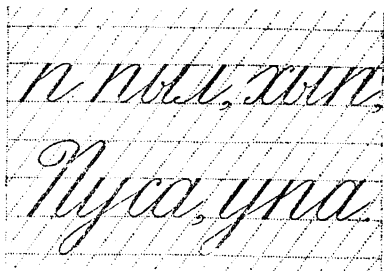 п пыл, хып,
Пуса, упа.